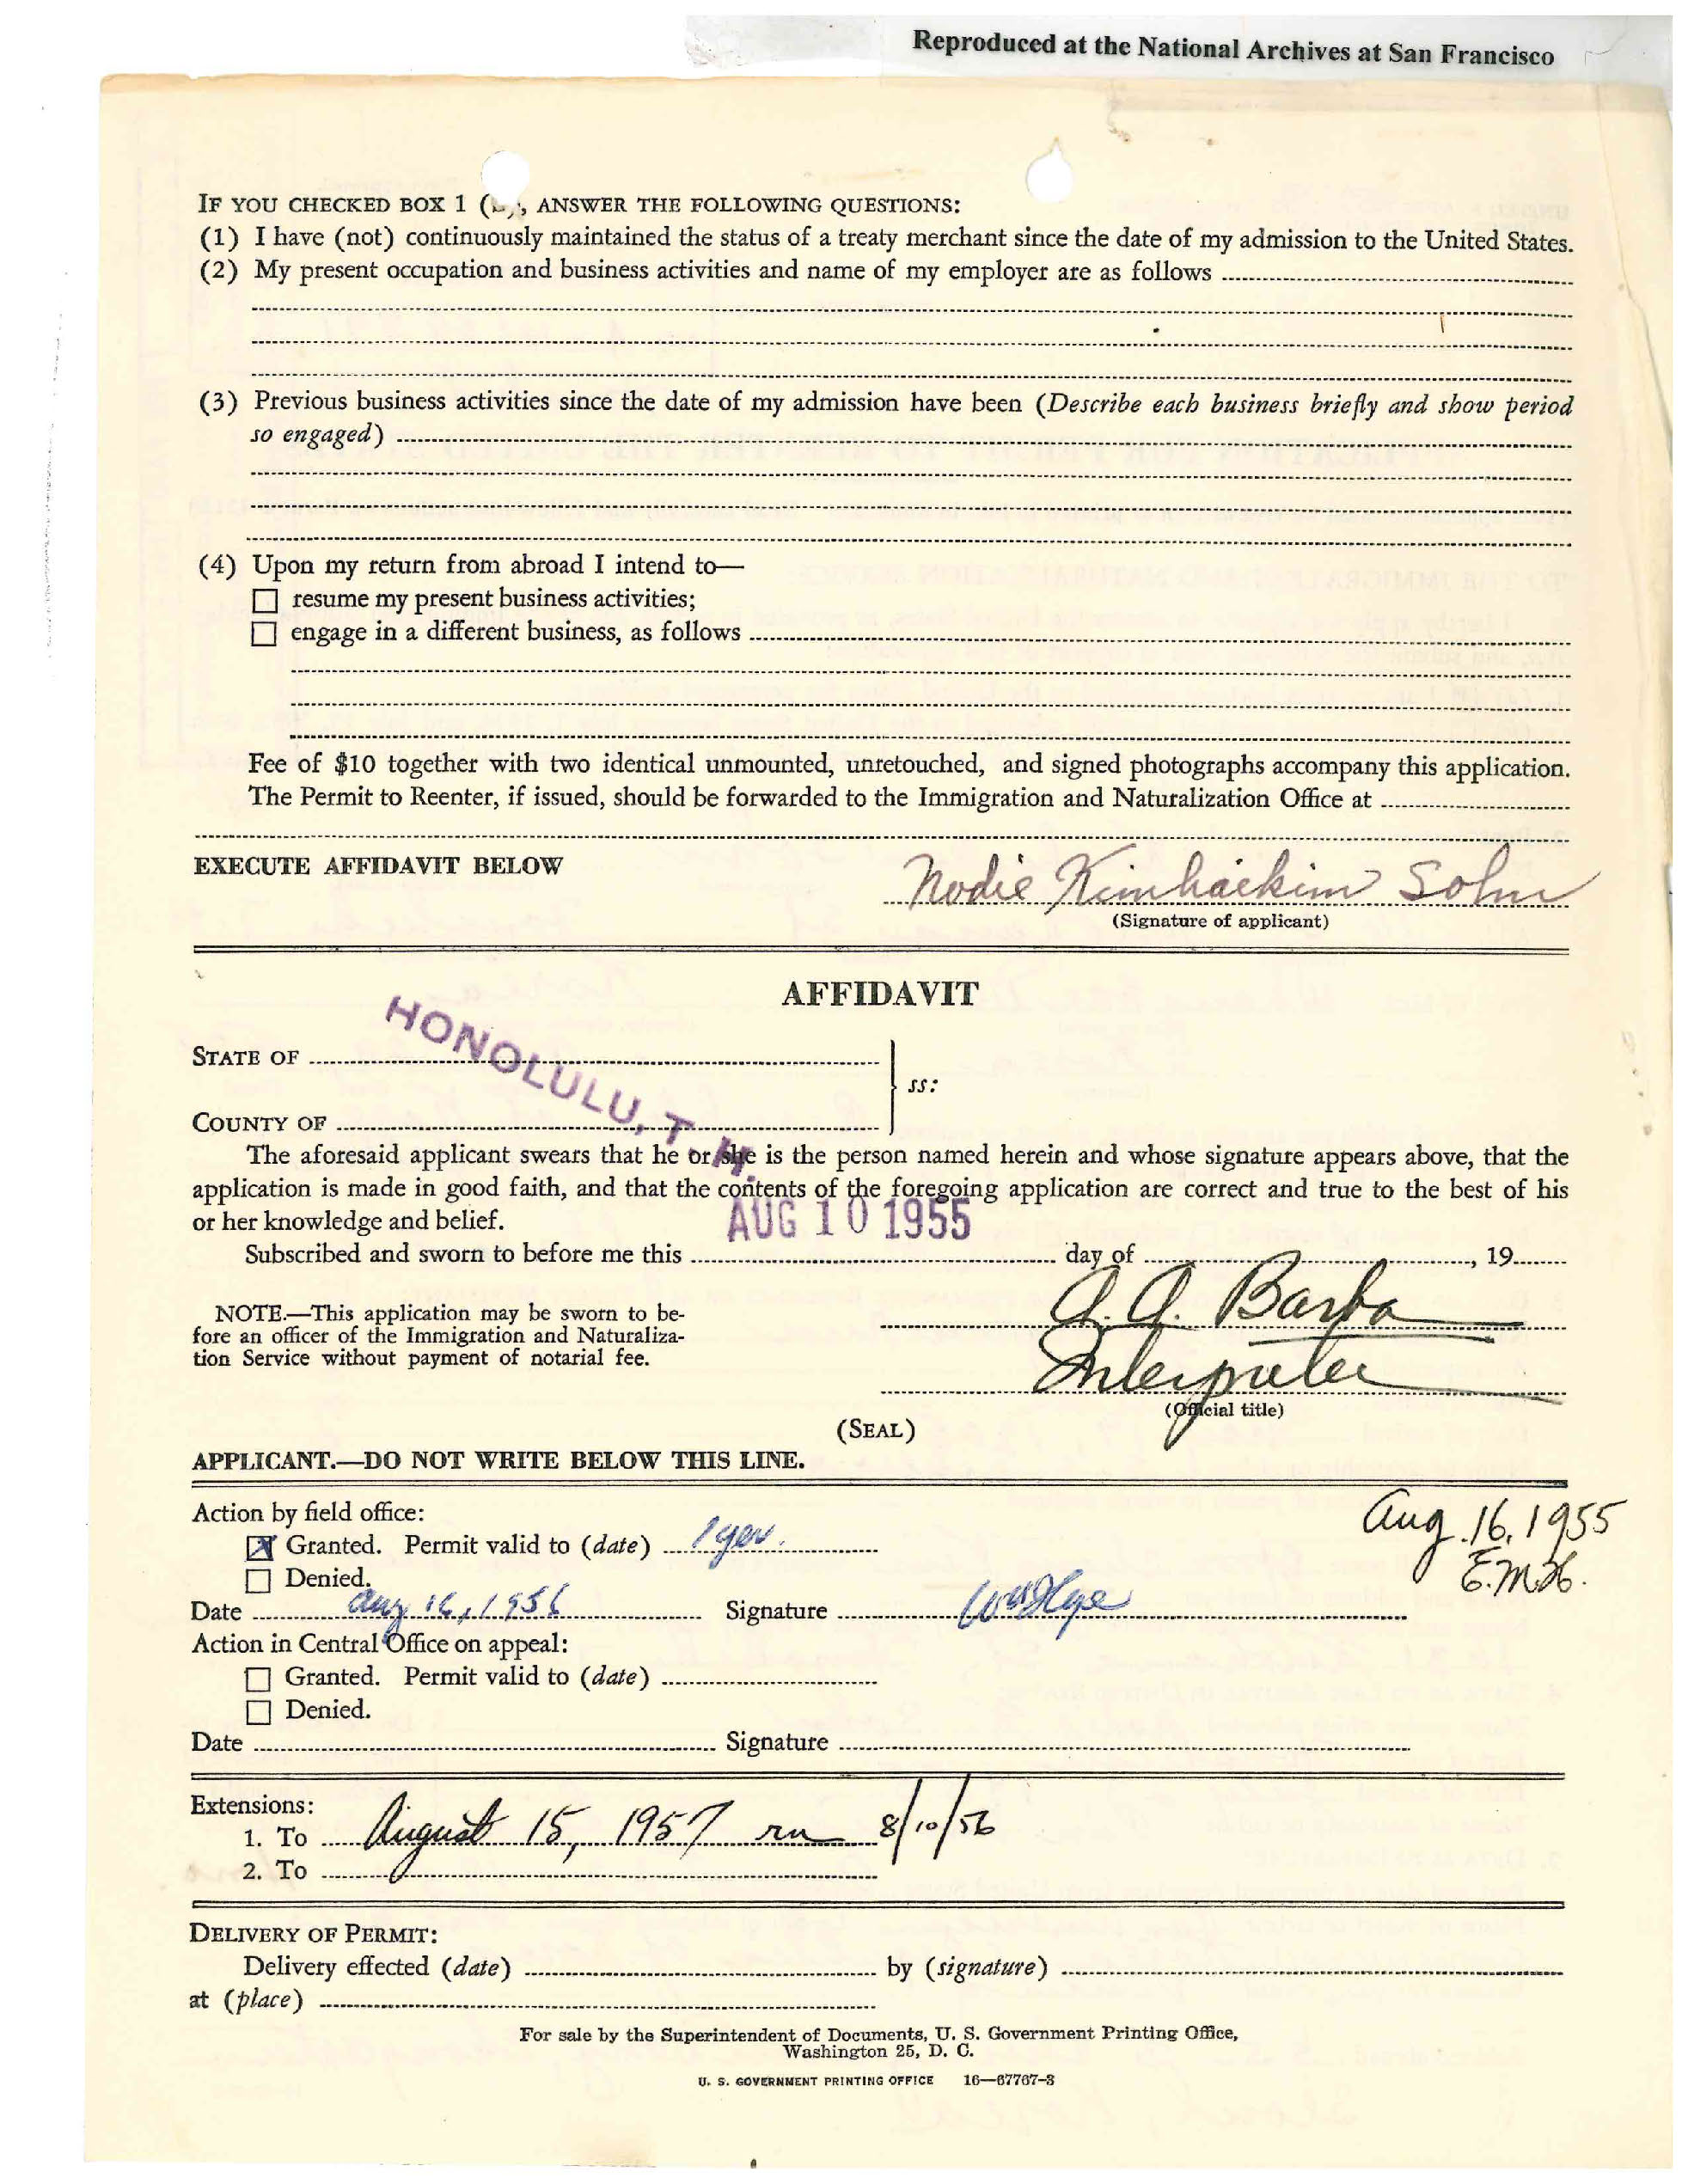 Reproduced at the National Archives at San Francisco
IF YOU CHECKED BOX 1 ( ), ANSWER THE FOLLOWING QUESTIONS:
(1) I have (not) continuously maintained the status of a treaty merchant since the date of my admission to the United States.
(2) My present occupation and business activities and name of my employer are as follows
(3) Previous business activities since the date of my admission have been (Describe each business briefly and show period
so engaged)
(4) Upon my return from abroad I intend to—
resume my present business activities;
engage in a different business, as follows
Fee of $10 together with two identical unmounted, unretouched, and signed photographs accompany this application.
The Permit to Reenter, if issued, should be forwarded to the Immigration and Naturalization Office at
EXECUTE AFFIDAVIT BELOW
Nodie Kimhaikim Sohn
(Signature of applicant)
AFFIDAVIT
HONOLULU, T. H.
STATE OF
ss:
COUNTY OF
The aforesaid applicant swears that he or she is the person named herein and whose signature appears above, that the
application is made in good faith, and that the contents of the foregoing application are correct and true to the best of his
or her knowledge and belief.
AUG 10 1955
Subscribed and sworn to before me this day of , 19
A. A. Barba
NOTE.—This application may be sworn to be-
fore an officer of the Immigration and Naturaliza-
tion Service without payment of notarial fee.
Interpreter
(Official title)
(SEAL)
APPLICANT.—DO NOT WRITE BELOW THIS LINE.
Action by field office:
Aug. 16, 1955
Granted. Permit valid to (date) 1 year.
E.M.H.
Denied.
Date Aug 16, 1956 Signature
Action in Central Office on appeal:
Granted. Permit valid to (date)
Denied.
Date Signature
Extensions:
1. To August 15, 1957 rn 8/10/56
2. To
DELIVERY OF PERMIT:
Delivery effected (date) by (signature)
at (place)
For sale by the Superintendent of Documents, U. S. Government Printing Office,
Washington 25, D. C.
U. S. GOVERNMENT PRINTING OFFICE 16—67767-3